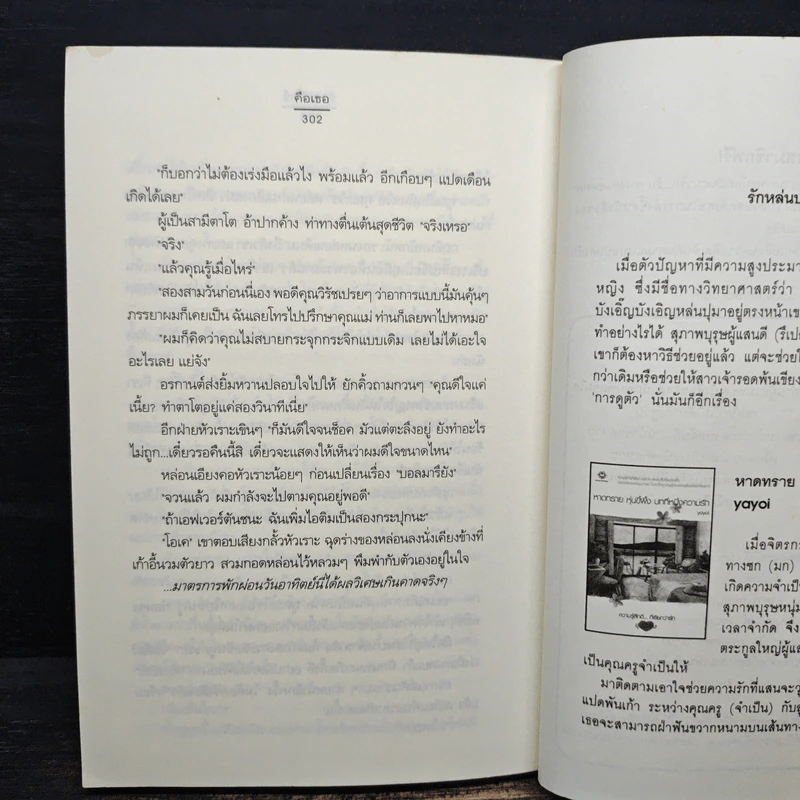 คือเธอ
302
"ก็บอกว่าไม่ต้องเร่งมือแล้วไง พร้อมแล้ว อีกเกือบๆ แปดเดือน
เกิดได้เลย"
ผู้เป็นสามีตาโต อ้าปากค้าง ท่าทางตื่นเต้นสุดชีวิต "จริงเหรอ"
"จริง"
"แล้วคุณรู้เมื่อไหร่"
"สองสามวันก่อนนี่เอง พอดีคุณวิรัชเปรยๆ ว่าอาการแบบนี้มันคุ้นๆ
ภรรยาผมก็เคยเป็น ฉันเลยโทรไปปรึกษาคุณแม่ ท่านก็เลยพาไปหาหมอ"
"ผมก็คิดว่าคุณไม่สบายกระจุกกระจิกแบบเดิม เลยไม่ได้เอะใจ
อะไรเลย แย่จัง"
อรกานต์ส่งยิ้มหวานปลอบใจไปให้ ยักคิ้วถามกวนๆ "คุณดีใจแค่
เนี้ย? ทำตาโตอยู่แค่สองวินาทีเนี่ย"
อีกฝ่ายหัวเราะเขินๆ "ก็มันดีใจจนช็อค มัวแต่ตะลึงอยู่ ยังทำอะไร
ไม่ถูก...เดี๋ยวรอคืนนี้สิ เดี๋ยวจะแสดงให้เห็นว่าผมดีใจขนาดไหน"
หล่อนเอียงคอหัวเราะน้อยๆ ก่อนเปลี่ยนเรื่อง "บอลมารึยัง"
"จวนแล้ว ผมกำลังจะไปตามคุณอยู่พอดี"
"ถ้าเอฟเวอร์ตันชนะ ฉันเพิ่มไอติมเป็นสองกระปุกนะ"
"โอเค" เขาตอบเสียงกลั้วหัวเราะ ฉุดร่างของหล่อนลงนั่งเคียงข้างที่
เก้าอี้นวมตัวยาว สวมกอดหล่อนไว้หลวมๆ พึมพำกับตัวเองอยู่ในใจ
...มาตรการพักผ่อนวันอาทิตย์นี่ได้ผลวิเศษเกินคาดจริงๆ
รักหล่นป
เมื่อตัวปัญหาที่มีความสูงประมา
หญิง ซึ่งมีชื่อทางวิทยาศาสตร์ว่า
บังเอิ๊ญบังเอิญหล่นปุมาอยู่ตรงหน้าเข
ทำอย่างไรได้ สุภาพบุรุษผู้แสนดี (รึเปล
เขาก็ต้องหาวิธีช่วยอยู่แล้ว แต่จะช่วยใ
กว่าเดิมหรือช่วยให้สาวเจ้ารอดพ้นเขียง
'การดูตัว' นั่นมันก็อีกเรื่อง
หาดทราย หุ่นขี้ผึ้ง บทที่หนึ่งความรัก
yayoi
ความรู้สึกดี... ที่เรียกว่ารัก
หาดทราย
yayoi
เมื่อจิตรกร
ทางซก (มก)
เกิดความจำเป็
สุภาพบุรุษหนุ่ม
เวลาจำกัด จึง
ตระกูลใหญ่ผู้แส
เป็นคุณครูจำเป็นให้
มาติดตามเอาใจช่วยความรักที่แสนจะวุ่
แปดพันเก้า ระหว่างคุณครู (จำเป็น) กับลู
เธอจะสามารถฝ่าฟันขวากหนามบนเส้นทา